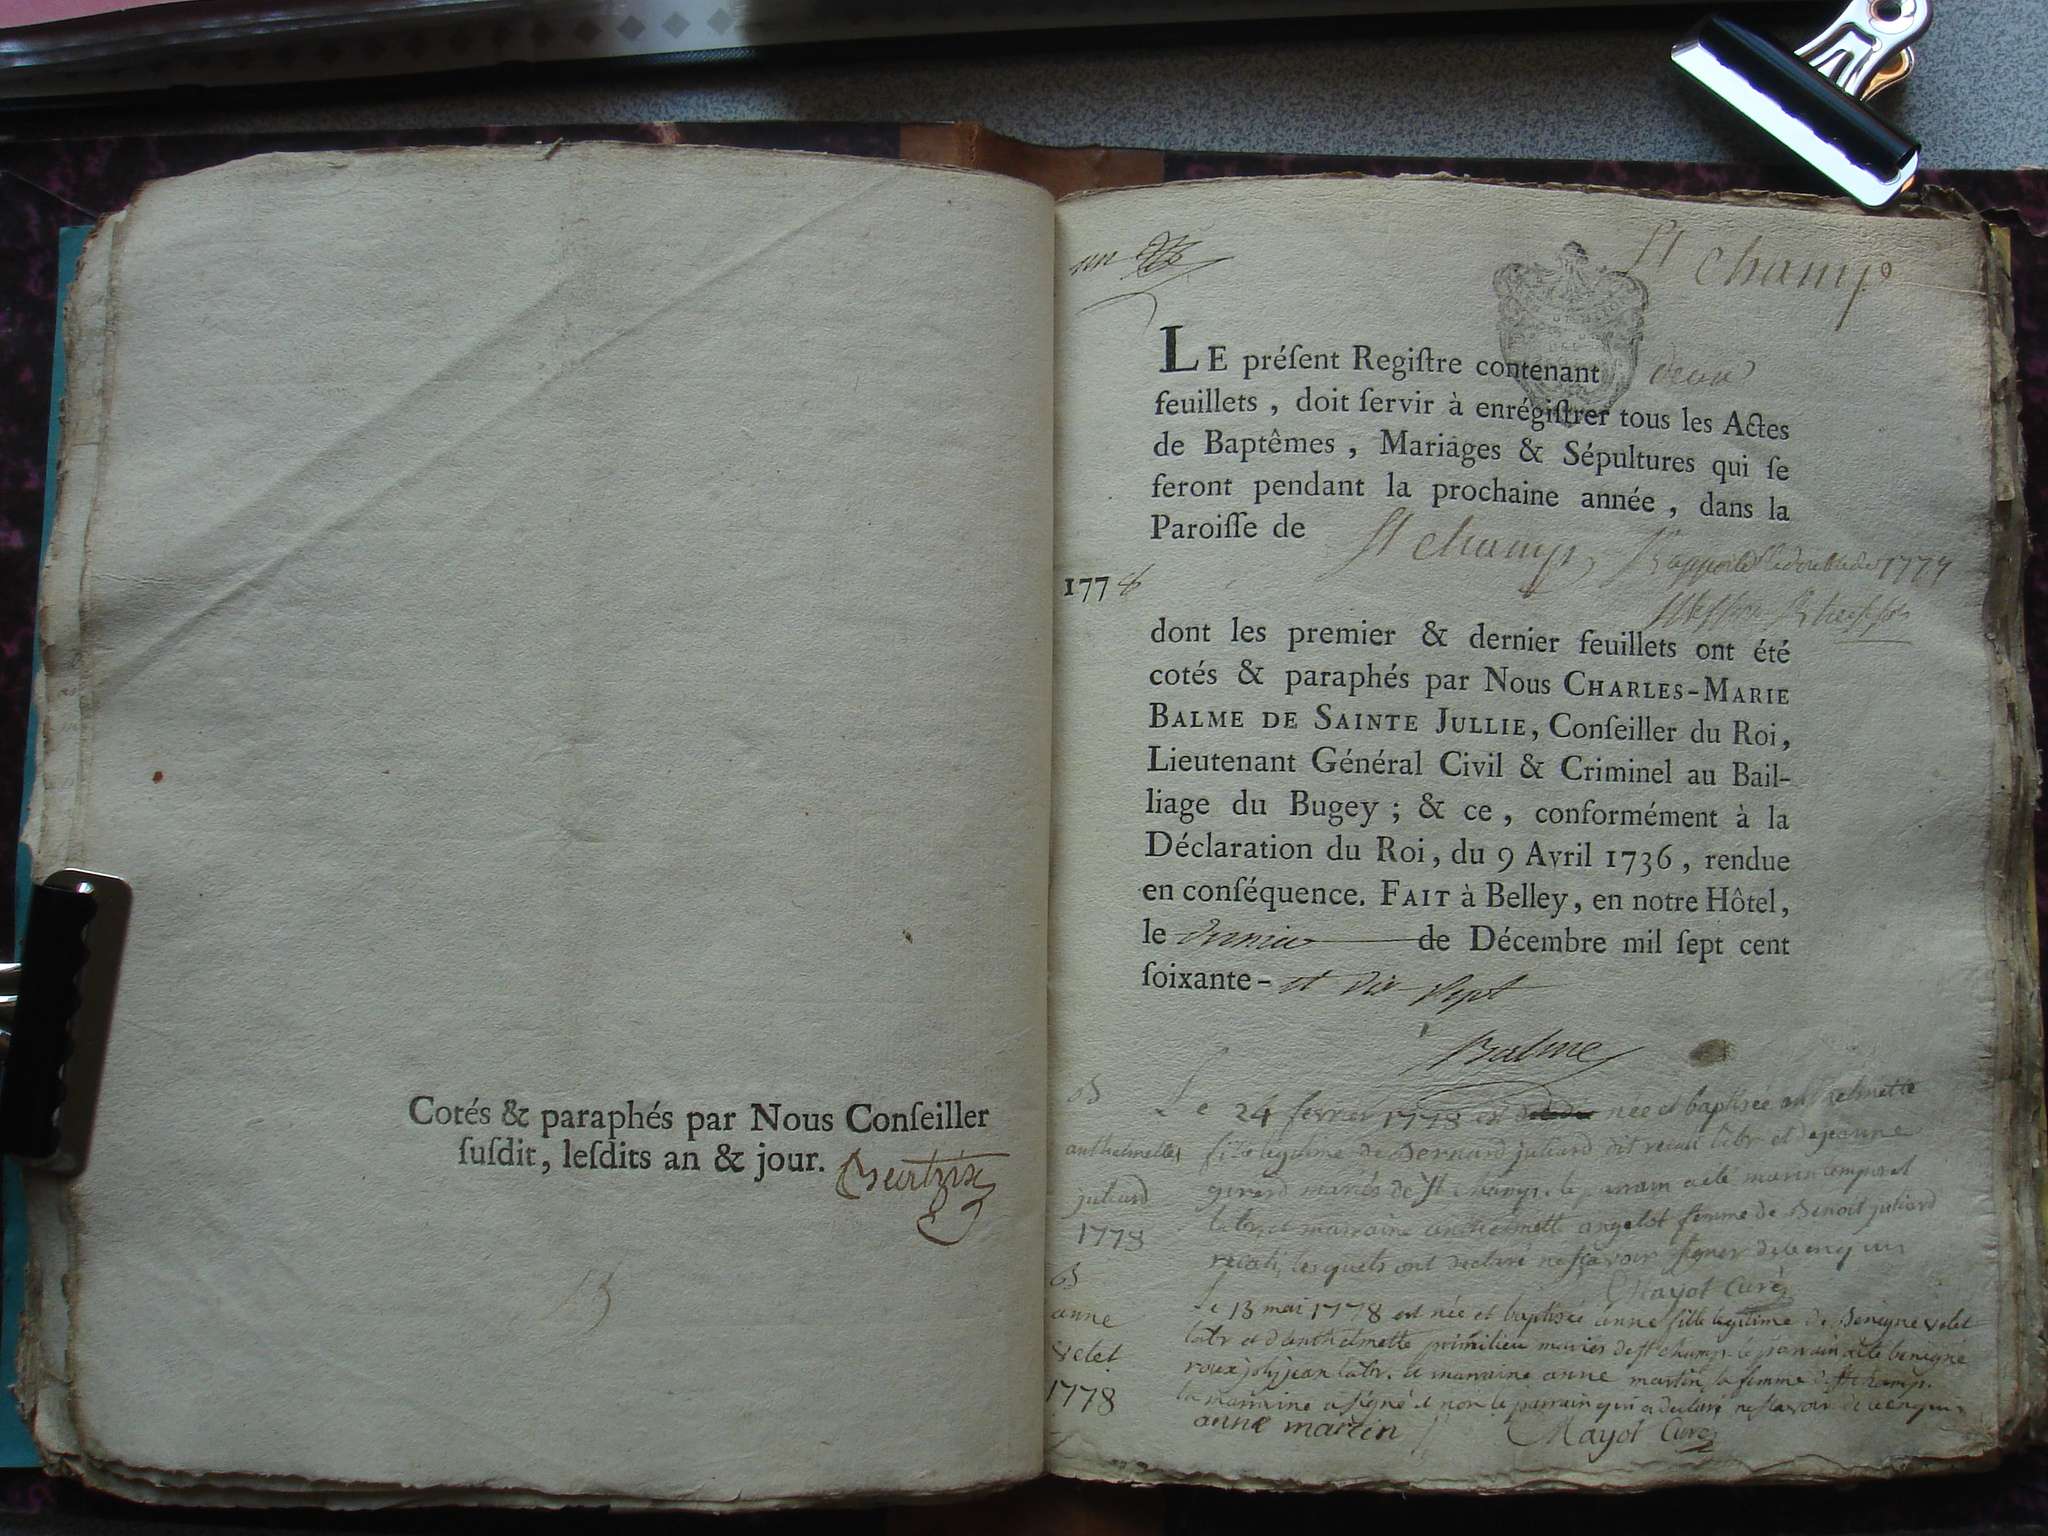 Cotés & paraphés par Nous Conſeiller
ſuſdit, leſdits an & jour.
un
St champ
LE préſent Regiſtre contenant deux
feuillets, doit ſervir à enrégiſtrer tous les Actes
de Baptêmes, Mariages & Sépultures qui ſe
feront pendant la prochaine année, dans la
Paroiſſe de St champ
1778
dont les premier & dernier feuillets ont été
cotés & paraphés par Nous CHARLES-MARIE
BALME DE SAINTE JULLIE, Conſeiller du Roi,
Lieutenant Général Civil & Criminel au Bail-
liage du Bugey; & ce, conformément à la
Déclaration du Roi, du 9 Avril 1736, rendue
en conſéquence. FAIT à Belley, en notre Hôtel,
le dernier de Décembre mil ſept cent
ſoixante- et dix sept
Balme
anthelmette
juliard
1778
Le 24 fevrier 1778 est née et baptisée anthelmette
fille legitime de Bernard juliard dit recali labr et de jeanne
girerd mariés de St champ. le parrain a été marin temporel
labr, et marraine anthelmette angelot femme de Benoit juliard
recali, lesquels ont declaré ne sçavoir signer de ce enquis
Mayot Curé
anne
velet
1778
Le 13 mai 1778 est née et baptisée anne fille legitime de Benigne velet
labr et d'anthelmette primilieu mariés de st champ. le parrain a été benigne
roux joly jean labr. la marraine anne martin sa femme de st champ.
la marraine a signé et non le parrain qui a declaré ne sçavoir de ce enquis
anne martin
Mayot Curé